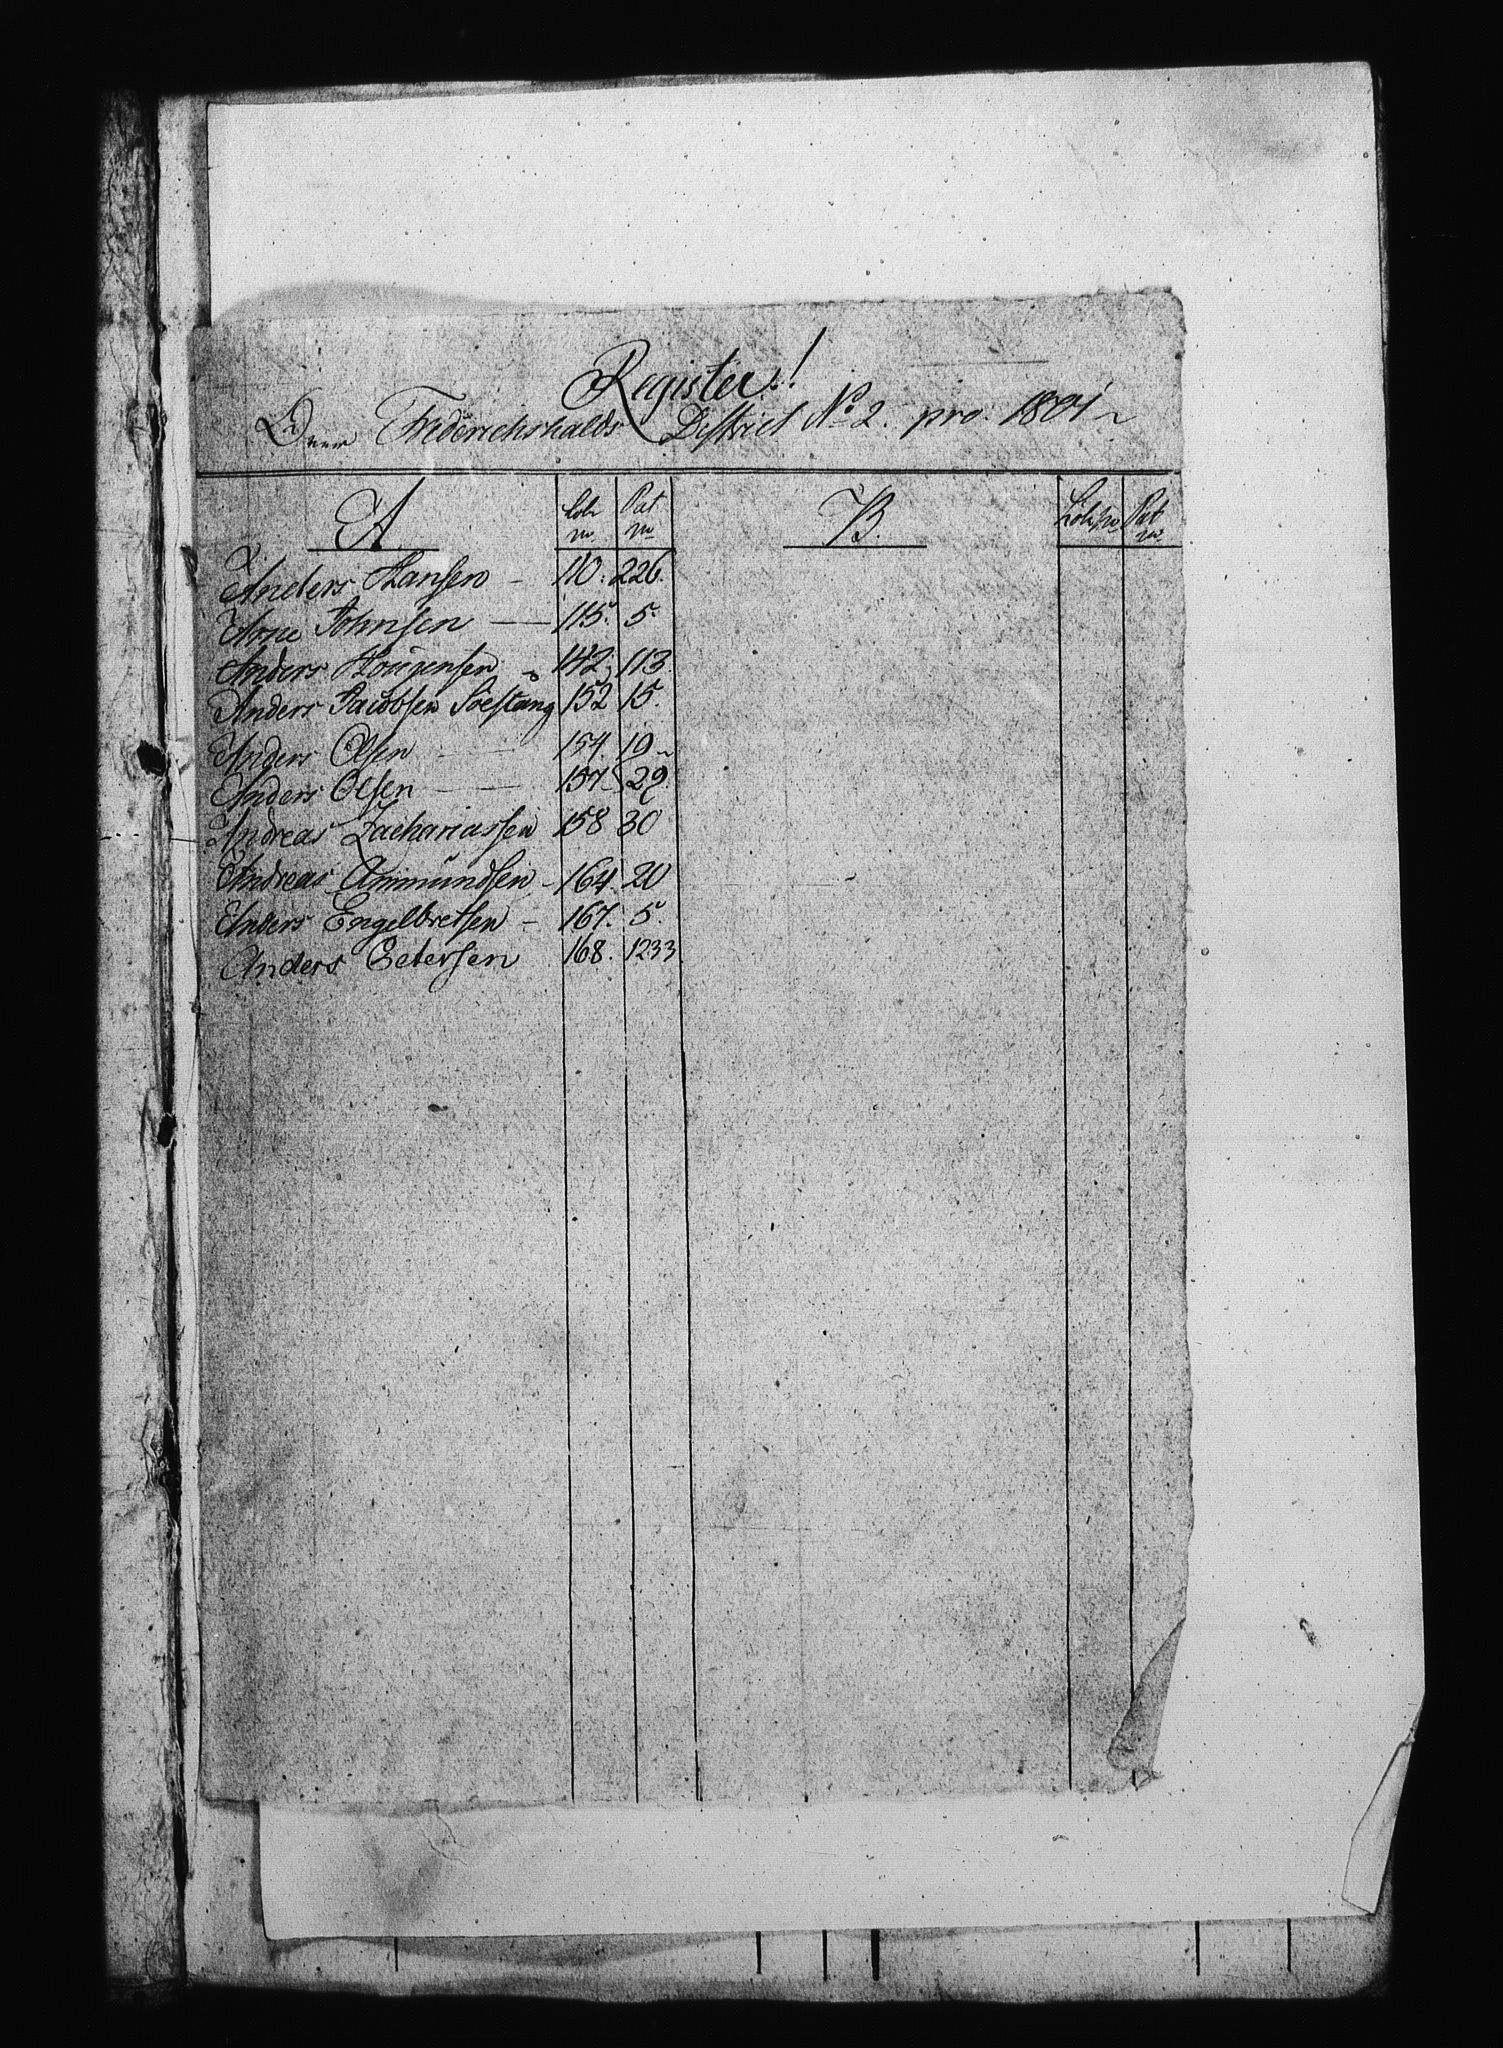 Register!
Over Friderichshalds District No 2. pro. 1801
A. Lob no. Pat no B. Lob no Pat no.
Anders Hansen - 110. 226.
Arne Johnsen - 115. 5.
Anders Hougensen 142. 113.
Anders Jacobsen Söestang 152 15.
Anders Olsen - 154 19
Anders Olsen - 157 29.
Andreas Zachariassen 158 30
Andreas Ammundsen - 164. 20
Anders Engelbretsen - 167. 5.
Anders Petersen 168. 1233